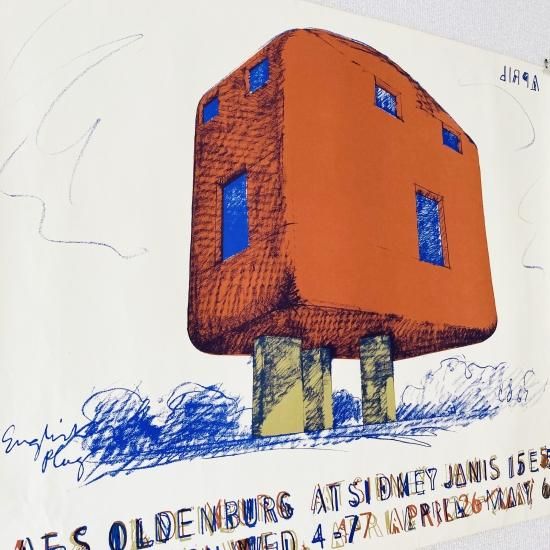 APRIL
English
Plug
C.O. 67
AES OLDENBURG AT SIDNEY JANIS 15 E 5
WED. 4-7 APRIL 26-MAY 6